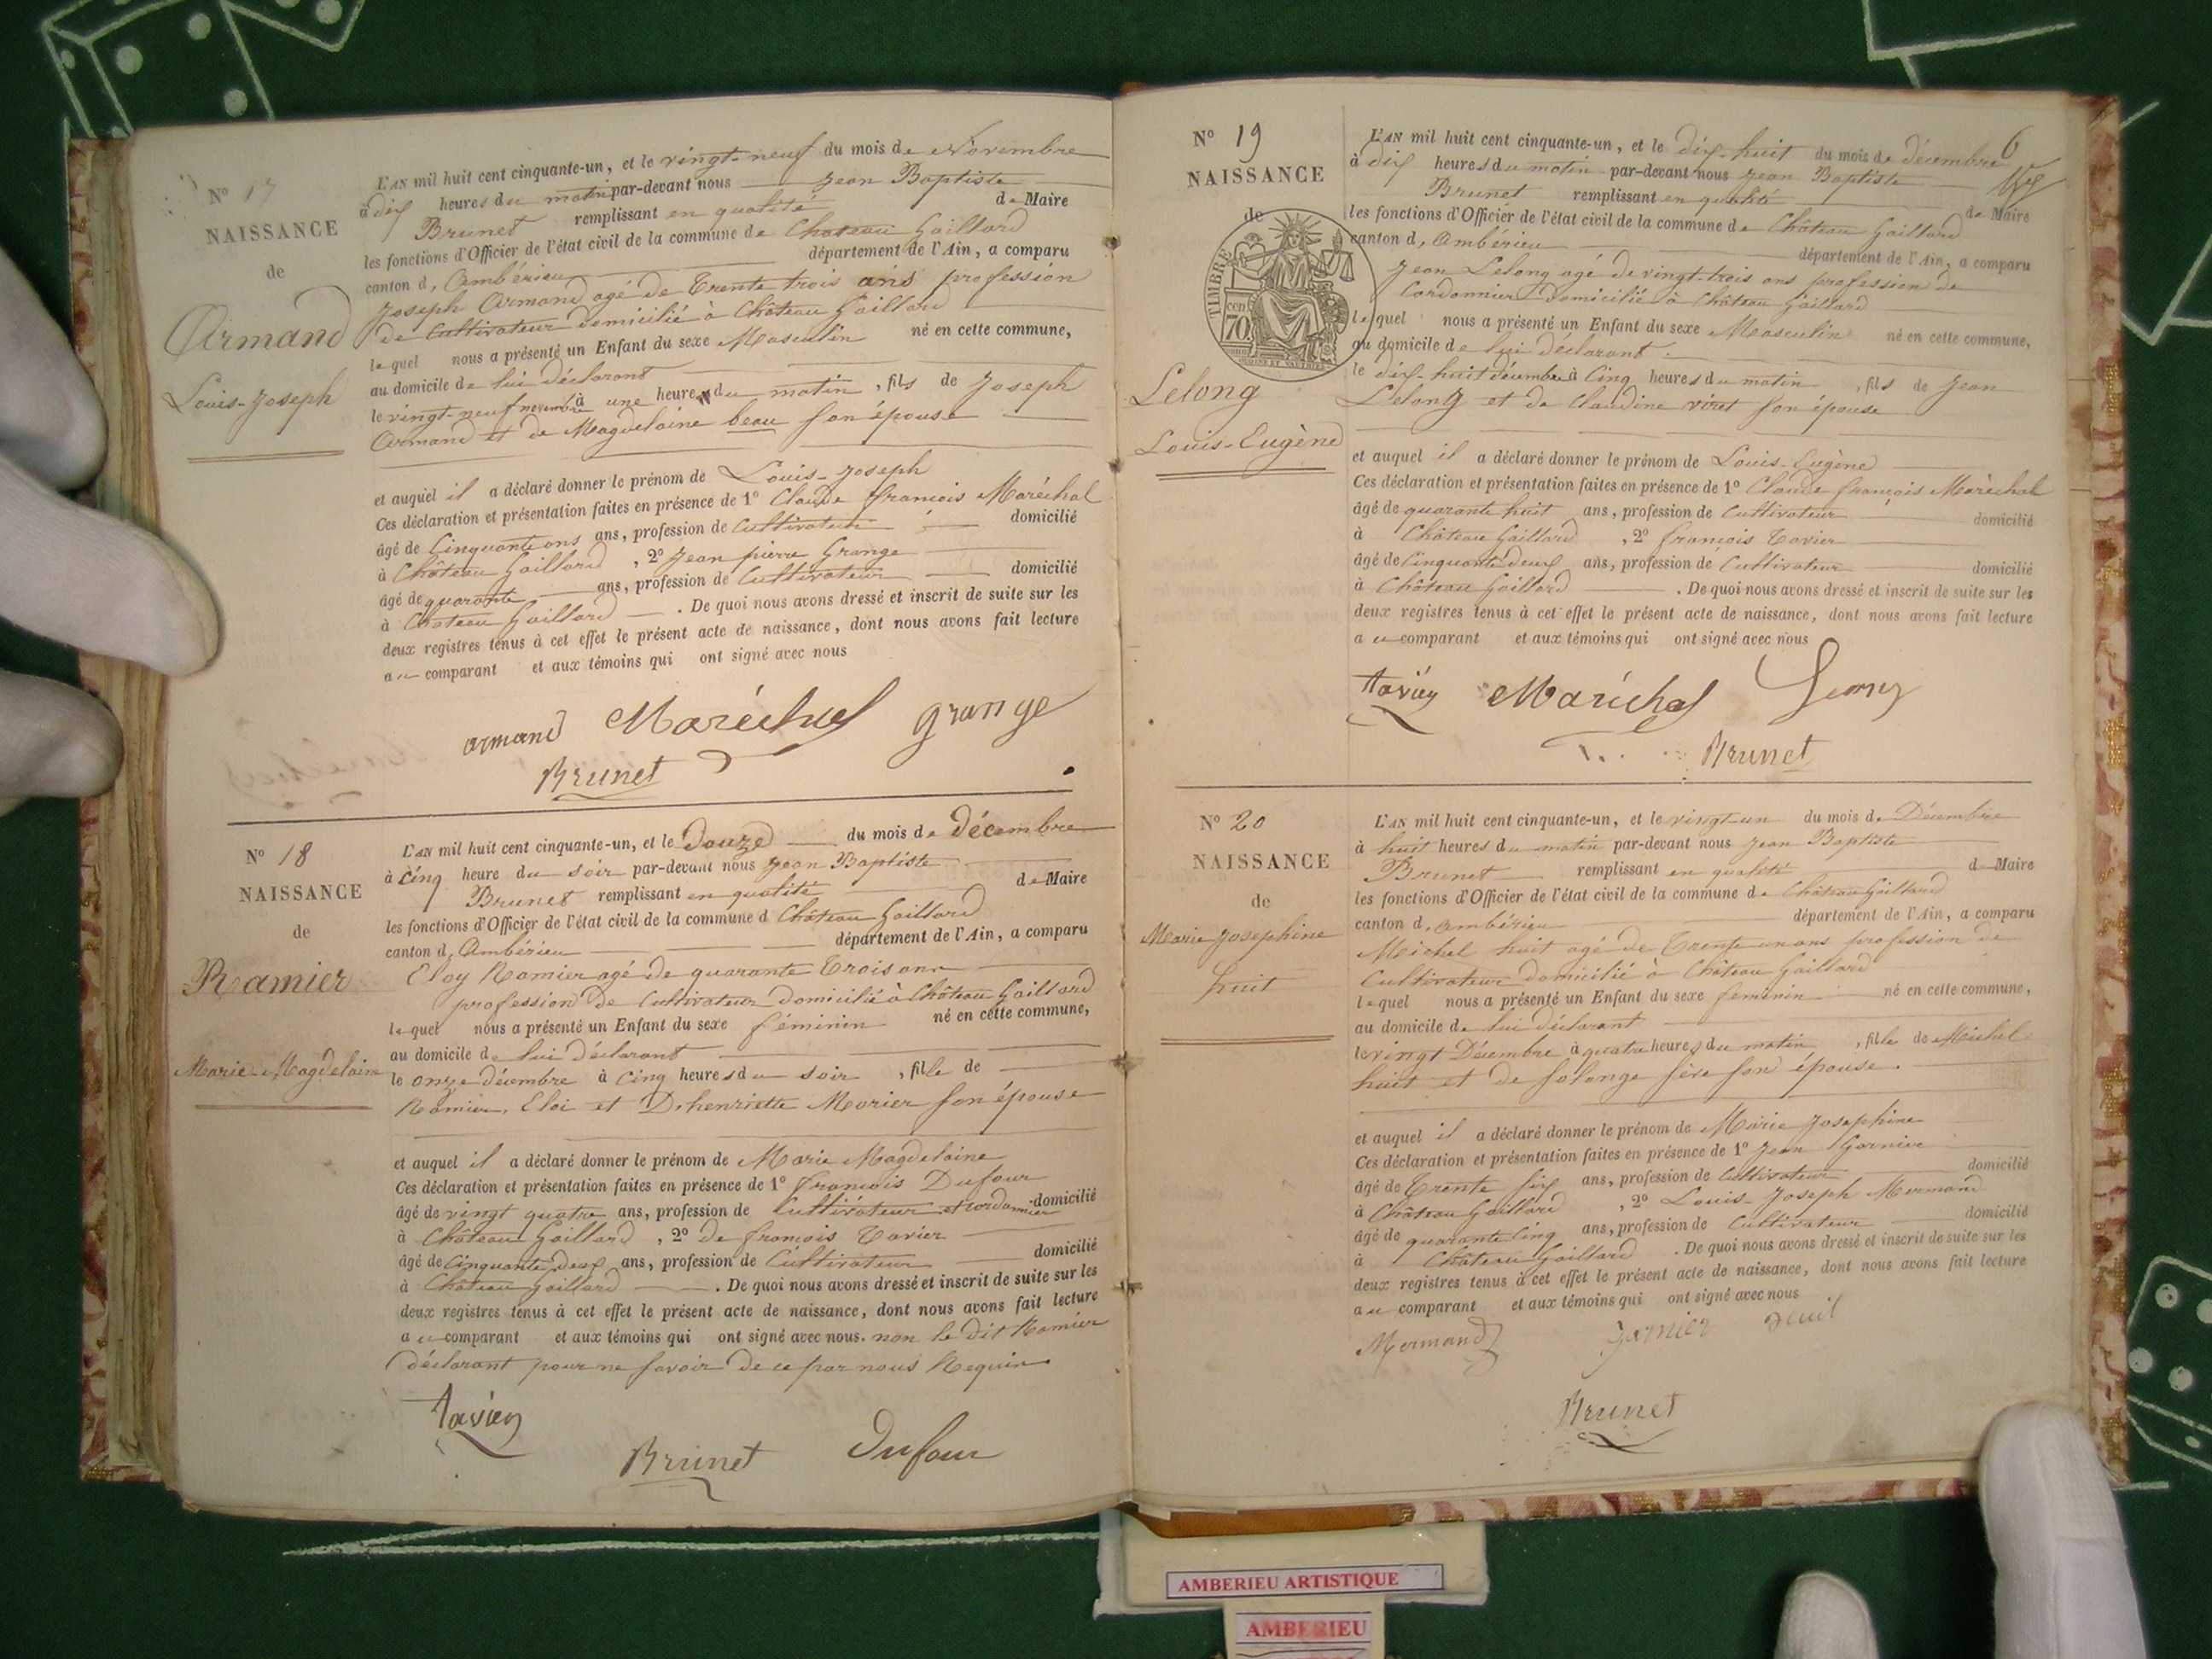 Nº 17
NAISSANCE
de
Armand
Louis-Joseph
L'AN mil huit cent cinquante-un, et le vingt-neuf du mois de Novembre
à dix heures du matin par-devant nous Jean Baptiste
Brunet remplissant en qualité de Maire
les fonctions d'Officier de l'état civil de la commune de Chateau Gaillard
canton d, Ambérieu département de l'Ain, a comparu
Joseph Armand agé de Trente trois ans profession
de Cultivateur domicilié à Château Gaillard
lequel nous a présenté un Enfant du sexe Masculin né en cette commune,
au domicile de lui déclarant
le vingt-neuf novembre à une heure du matin, fils de Joseph
Armand et de Magdelaine beau son épouse
et auquel il a déclaré donner le prénom de Louis-Joseph
Ces déclaration et présentation faites en présence de 1º Claude francois Maréchal
âgé de Cinquante ans ans, profession de Cultivateur domicilié
à Château Gaillard, 2º Jean pierre Grange
âgé de quarante ans, profession de Cultivateur domicilié
à Chateau Gaillard. De quoi nous avons dressé et inscrit de suite sur les
deux registres tenus à cet effet le présent acte de naissance, dont nous avons fait lecture
au comparant et aux témoins qui ont signé avec nous
armand Maréchal grange
Brunet
Nº 18
NAISSANCE
de
Ramier
Marie-Magdelaine
L'AN mil huit cent cinquante-un, et le Douze du mois de décembre
à Cinq heure du soir par-devant nous Jean Baptiste
Brunet remplissant en qualité de Maire
les fonctions d'Officier de l'état civil de la commune d Château Gaillard
canton d, Ambérieu département de l'Ain, a comparu
Eloy Ramier agé de quarante Trois ans
profession de Cultivateur domicilié à Château Gaillard
lequel nous a présenté un Enfant du sexe féminin né en cette commune,
au domicile de lui déclarant
le onze décembre à Cinq heures du soir, fille de
Ramier, Eloi et D. henriette Morier son épouse
et auquel il a déclaré donner le prénom de Marie Magdelaine
Ces déclaration et présentation faites en présence de 1º francois Dufour
âgé de vingt quatre ans, profession de Cultivateur et cordonnier domicilié
à Château Gaillard, 2º de francois Tavier
âgé de Cinquante deux ans, profession de Cultivateur domicilié
à Château Gaillard. De quoi nous avons dressé et inscrit de suite sur les
deux registres tenus à cet effet le présent acte de naissance, dont nous avons fait lecture
au comparant et aux témoins qui ont signé avec nous. non le dit Ramier
déclarant pour ne savoir de ce par nous Requin
Tavier
Brunet Dufour
6
Nº 19
NAISSANCE
de
TIMBRE
70
Lelong
Louis-Eugène
L'AN mil huit cent cinquante-un, et le dix-huit du mois de décembre
à dix heures du matin par-devant nous Jean Baptiste
Brunet remplissant en qualité de Maire
les fonctions d'Officier de l'état civil de la commune de Château Gaillard
canton d, Ambérieu département de l'Ain, a comparu
Jean Lelong agé de vingt-trois ans profession de
Cordonnier domicilié à Château Gaillard
lequel nous a présenté un Enfant du sexe Masculin né en cette commune,
au domicile de lui déclarant.
le dix-huit décembre à Cinq heures du matin, fils de Jean
Lelong et de Claudine viret son épouse
et auquel il a déclaré donner le prénom de Louis-Eugène
Ces déclaration et présentation faites en présence de 1º Claude françois Maréchal
âgé de quarante huit ans, profession de Cultivateur domicilié
à Château Gaillard, 2º francois Tavier
âgé de Cinquante deux ans, profession de Cultivateur domicilié
à Château Gaillard. De quoi nous avons dressé et inscrit de suite sur les
deux registres tenus à cet effet le présent acte de naissance, dont nous avons fait lecture
au comparant et aux témoins qui ont signé avec nous
Tavier Maréchal
Brunet
Nº 20
NAISSANCE
de
Marie Josephine
huit
L'AN mil huit cent cinquante-un, et le vingt un du mois d, Décembre
à huit heures du matin par-devant nous Jean Baptiste
Brunet remplissant en qualité de Maire
les fonctions d'Officier de l'état civil de la commune de Château Gaillard
canton d, Ambérieu département de l'Ain, a comparu
Michel huit agé de Trente un ans profession de
Cultivateur domicilié à Château Gaillard
lequel nous a présenté un Enfant du sexe feminin né en cette commune,
au domicile de lui déclarant
le vingt Décembre à quatre heures du matin, fille de Michel
huit et de Solange fère son épouse.
et auquel il a déclaré donner le prénom de Marie Josephine
Ces déclaration et présentation faites en présence de 1º Jean Garnier
âgé de Trente six ans, profession de Cultivateur domicilié
à Château Gaillard, 2º Louis-Joseph Mermand
âgé de quarante Cinq ans, profession de Cultivateur domicilié
à Château Gaillard. De quoi nous avons dressé et inscrit de suite sur les
deux registres tenus à cet effet le présent acte de naissance, dont nous avons fait lecture
au comparant et aux témoins qui ont signé avec nous
Mermand garnier
Brunet
AMBERIEU ARTISTIQUE
AMBERIEU